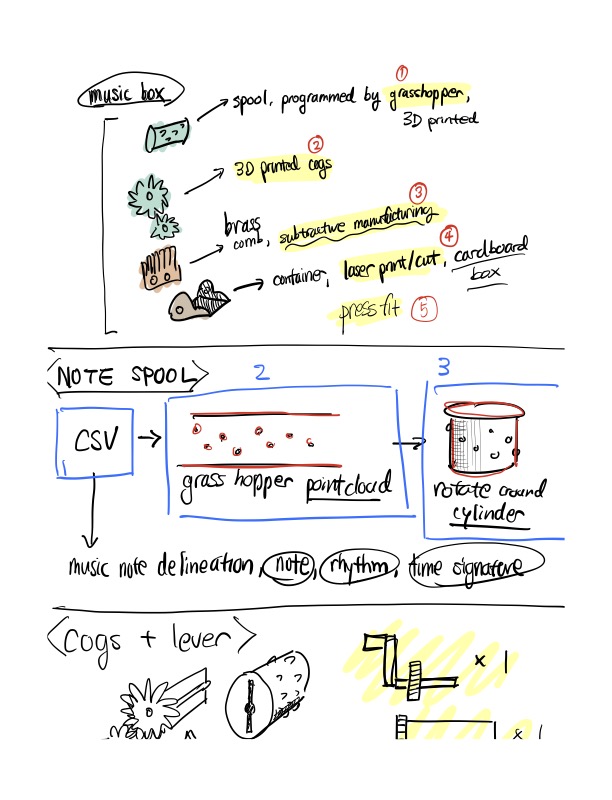 music box
①
spool, programmed by grasshopper,
3D printed
②
3D printed cogs
③
brass
comb, subtractive manufacturing
④
container, laser print/cut, cardboard
box
press fit ⑤
<NOTE SPOOL>
2
3
CSV
grass hopper pointcloud
rotate around
cylinder
music note delineation, note, rhythm, time signature
<cogs + lever>
x 1
x 1